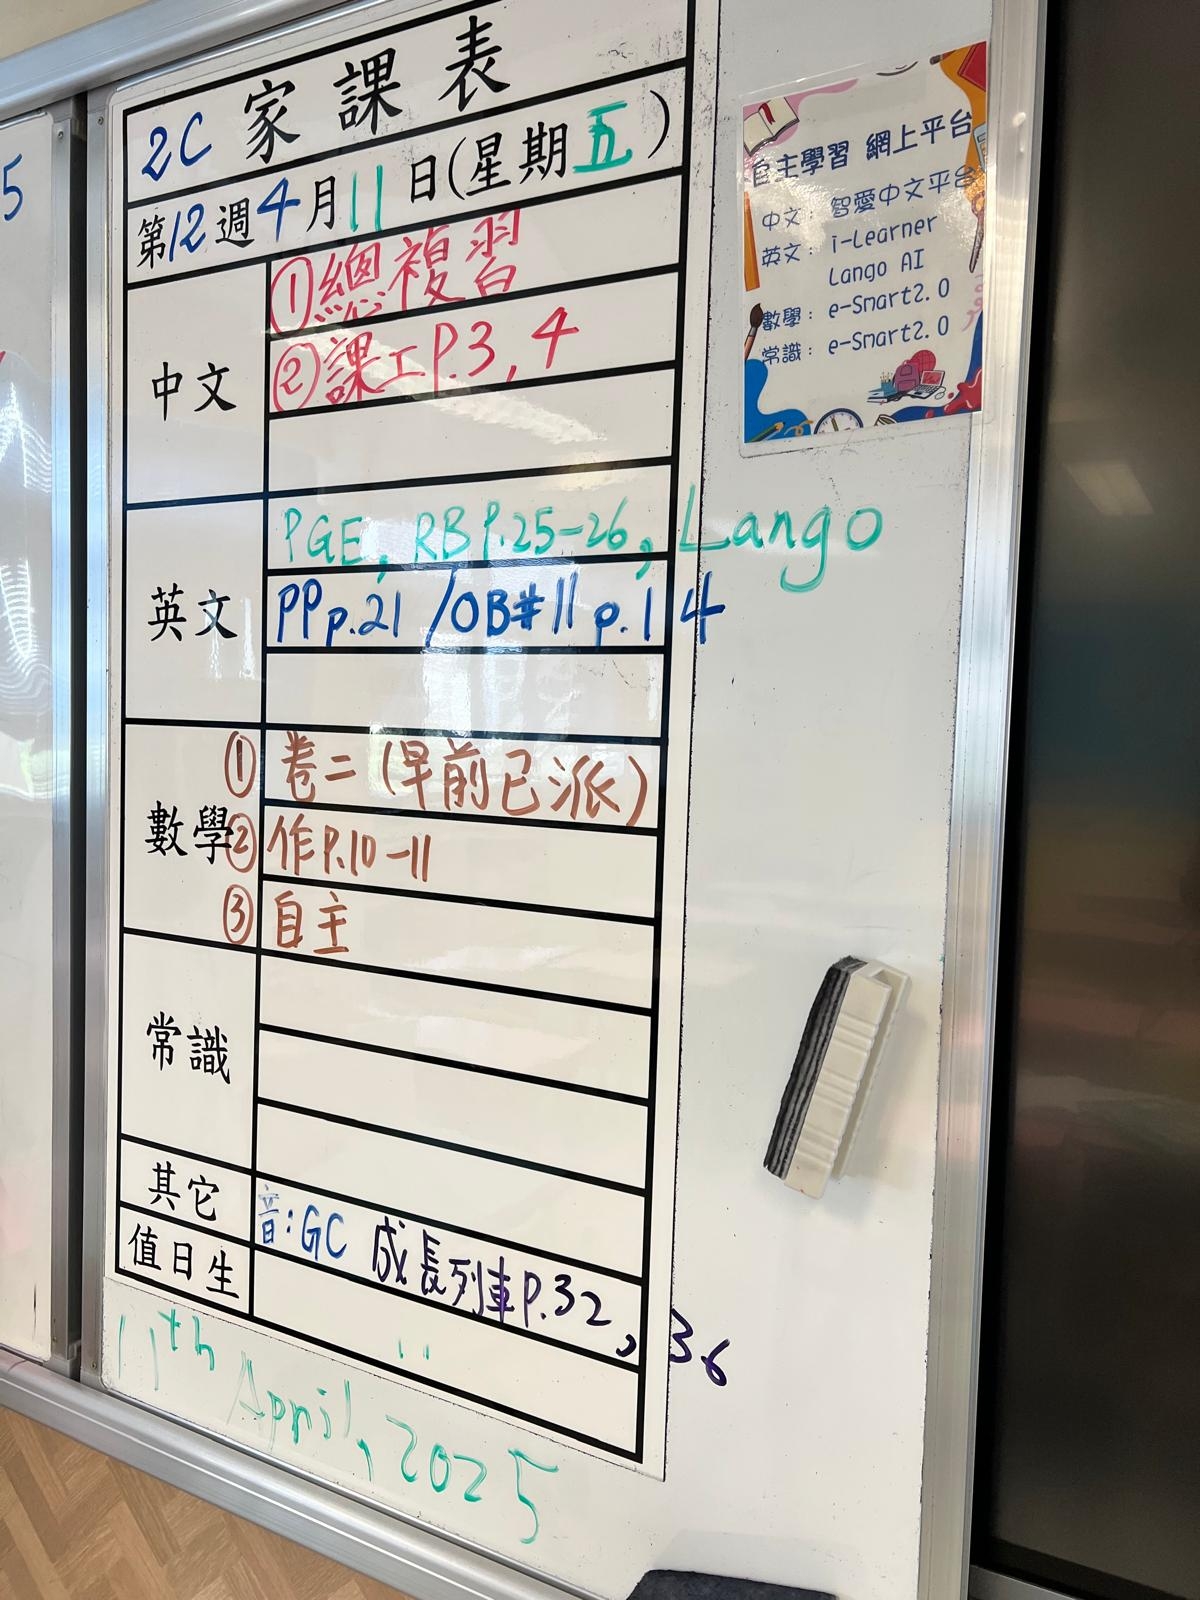 2C 家課表
第12週4月11日(星期五)
中文
①總複習
②課工P.3, 4
英文
PGE, RB P.25-26, Lango
PP p.21 /OB#11 p.14
數學
① 卷二 (早前已派)
② 作P.10-11
③ 自主
常識
其它
音:GC 成長列車P.32, 36
值日生
11th April, 2025
自主學習 網上平台
中文: 智愛中文平台
英文: i-Learner
Lango AI
數學: e-Smart2.0
常識: e-Smart2.0
5